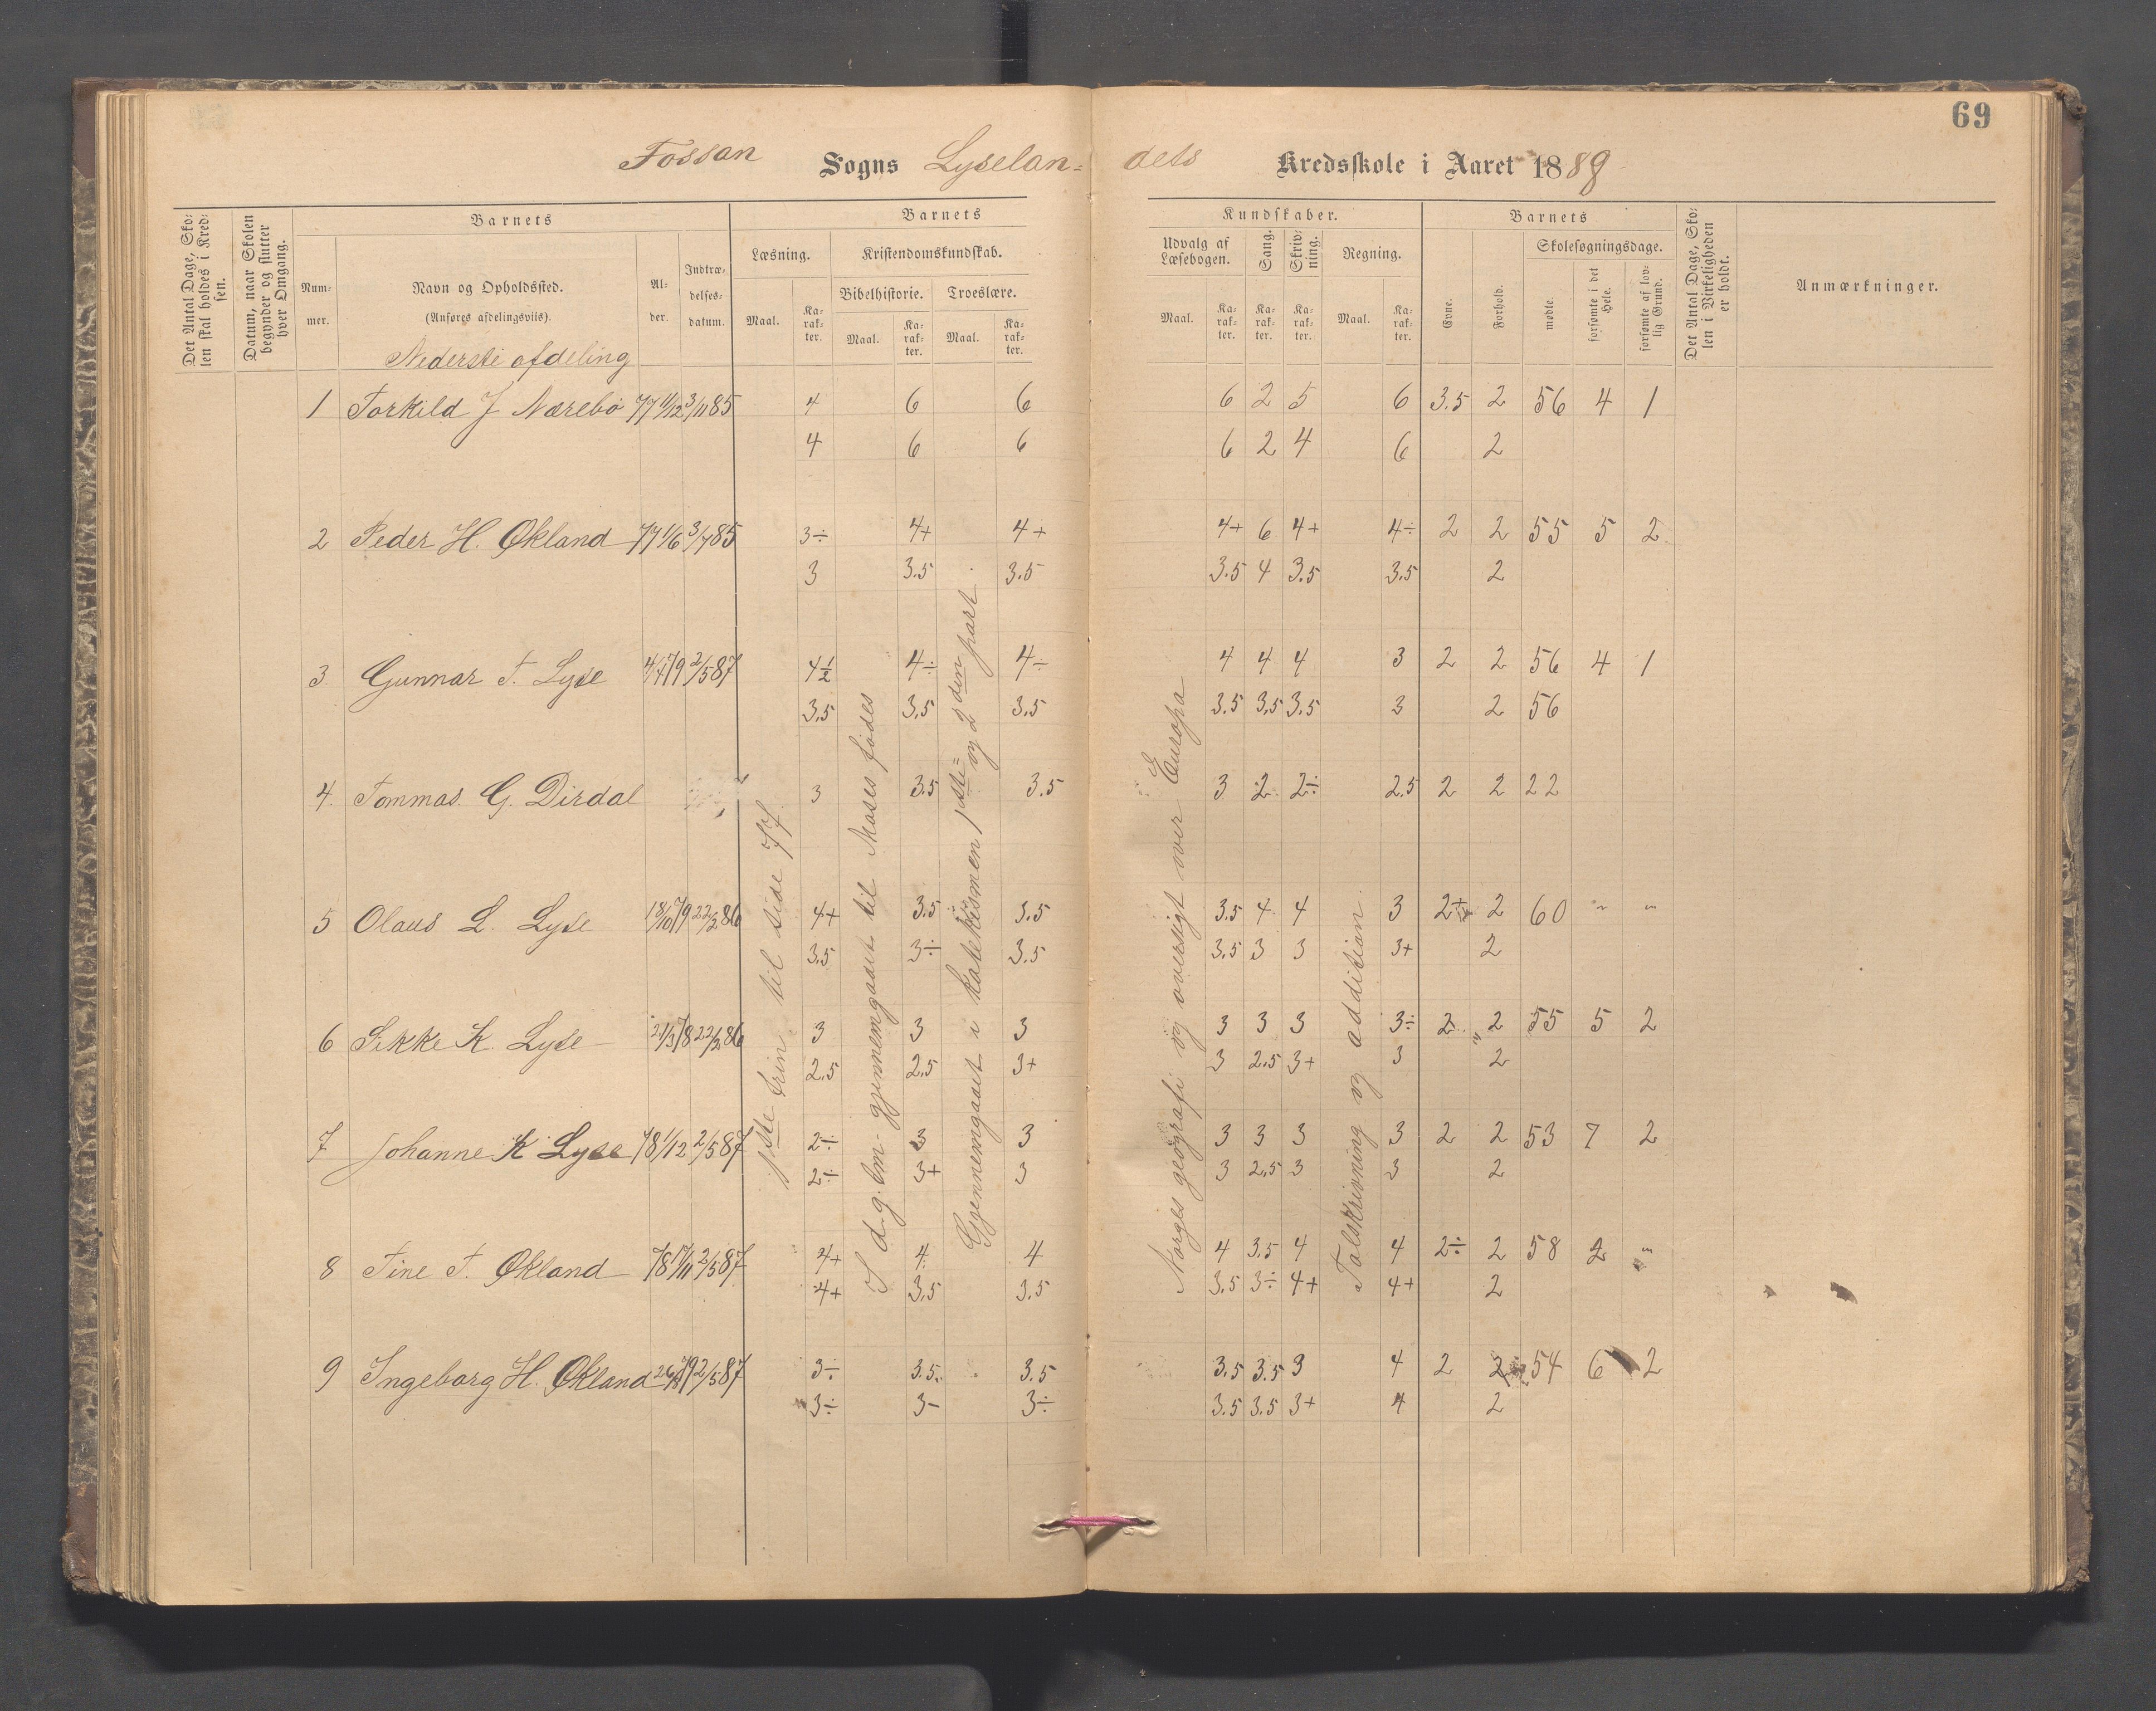 69
Fossan Sogns Lyselan= dets Kredsskole i Aaret 1889
Det Antal Dage, Sko-
len skal holdes i Kred-
sen.
Datum, naar Skolen
begynder og slutter
hver Omgang.
Barnets
Num-
mer.
Navn og Opholdssted.
(Anføres afdelingsviis).
Al-
der.
Indtræ-
delses-
datum.
Barnets
Læsning.
Maal.
Ka-
rak-
ter.
Kristendomskundskab.
Bibelhistorie.
Maal.
Ka-
rak-
ter.
Troeslære.
Maal.
Ka-
rak-
ter.
Kundskaber.
Udvalg af
Læsebogen.
Maal.
Ka-
rak-
ter.
Sang.
Ka-
rak-
ter.
Skriv-
ning.
Ka-
rak-
ter.
Regning.
Maal.
Ka-
rak-
ter.
Barnets
Evne.
Forhold.
Skolesøgningsdage.
mødte.
forsømte i det
Hele.
forsømte af lov-
lig Grund.
Det Antal Dage, Sko-
len i Virkeligheden
er holdt.
Anmærkninger.
Nederste afdeling
1 Torkild J Nærebø 77 11/12 3/11 85 4 6 6 6 2 5 6 3.5 2 56 4 1
4 6 6 6 2 4 6 2
2 Peder H. Økland 77 1/6 3/7 85 3÷ 4+ 4+ 4+ 6 4+ 4÷ 2 2 55 5 2
3 3.5 3.5 3.5 4 3.5 3.5 2
3 Gunnar T. Lyse 4/7 79 2/5 87 4½ 4÷ 4÷ 4 4 4 3 2 2 56 4 1
3.5 3.5 3.5 3.5 3.5 3.5 3 2 56
4. Tommas G. Dirdal 3 3.5 3.5 3 2 2÷ 2.5 2 2 22
5 Olaus L. Lyse 18/10 79 22/2 86 4+ 3.5 3.5 3.5 4 4 3 2+ 2 60 " "
3.5 3÷ 3.5 3.5 3 3 3+ 2
6 Sikke K. Lyse 21/3 78 22/2 86 3 3 3 3 3 3 3÷ 2 2 55 5 2
2.5 2.5 3+ 3 2.5 3+ 3 2
7 Johanne K Lyse 78 1/12 2/5 87 2÷ 3 3 3 3 3 3 2 2 53 7 2
2÷ 3+ 3 3 2.5 3 3 2
8 Tine T. Økland 78 17/11 2/5 87 4+ 4 4 4 3.5 4 4 2÷ 2 58 2 "
4+ 3.5 3.5 3.5 3÷ 4+ 4+ 2
9 Ingeborg H. Økland 79 2/5 87 3÷ 3.5 3.5 3.5 3.5 3 4 2 2 54 6 2
3÷ 3- 3÷ 3.5 3.5 3+ 4 2
1ste trin til side 77
I d.g. om- gjennemgaaet til Moses fødes
Gjennemgaaet i katekismen 1ste= og 2den part.
Norges geografi og oversigt over Europa
Talskrivning og addition